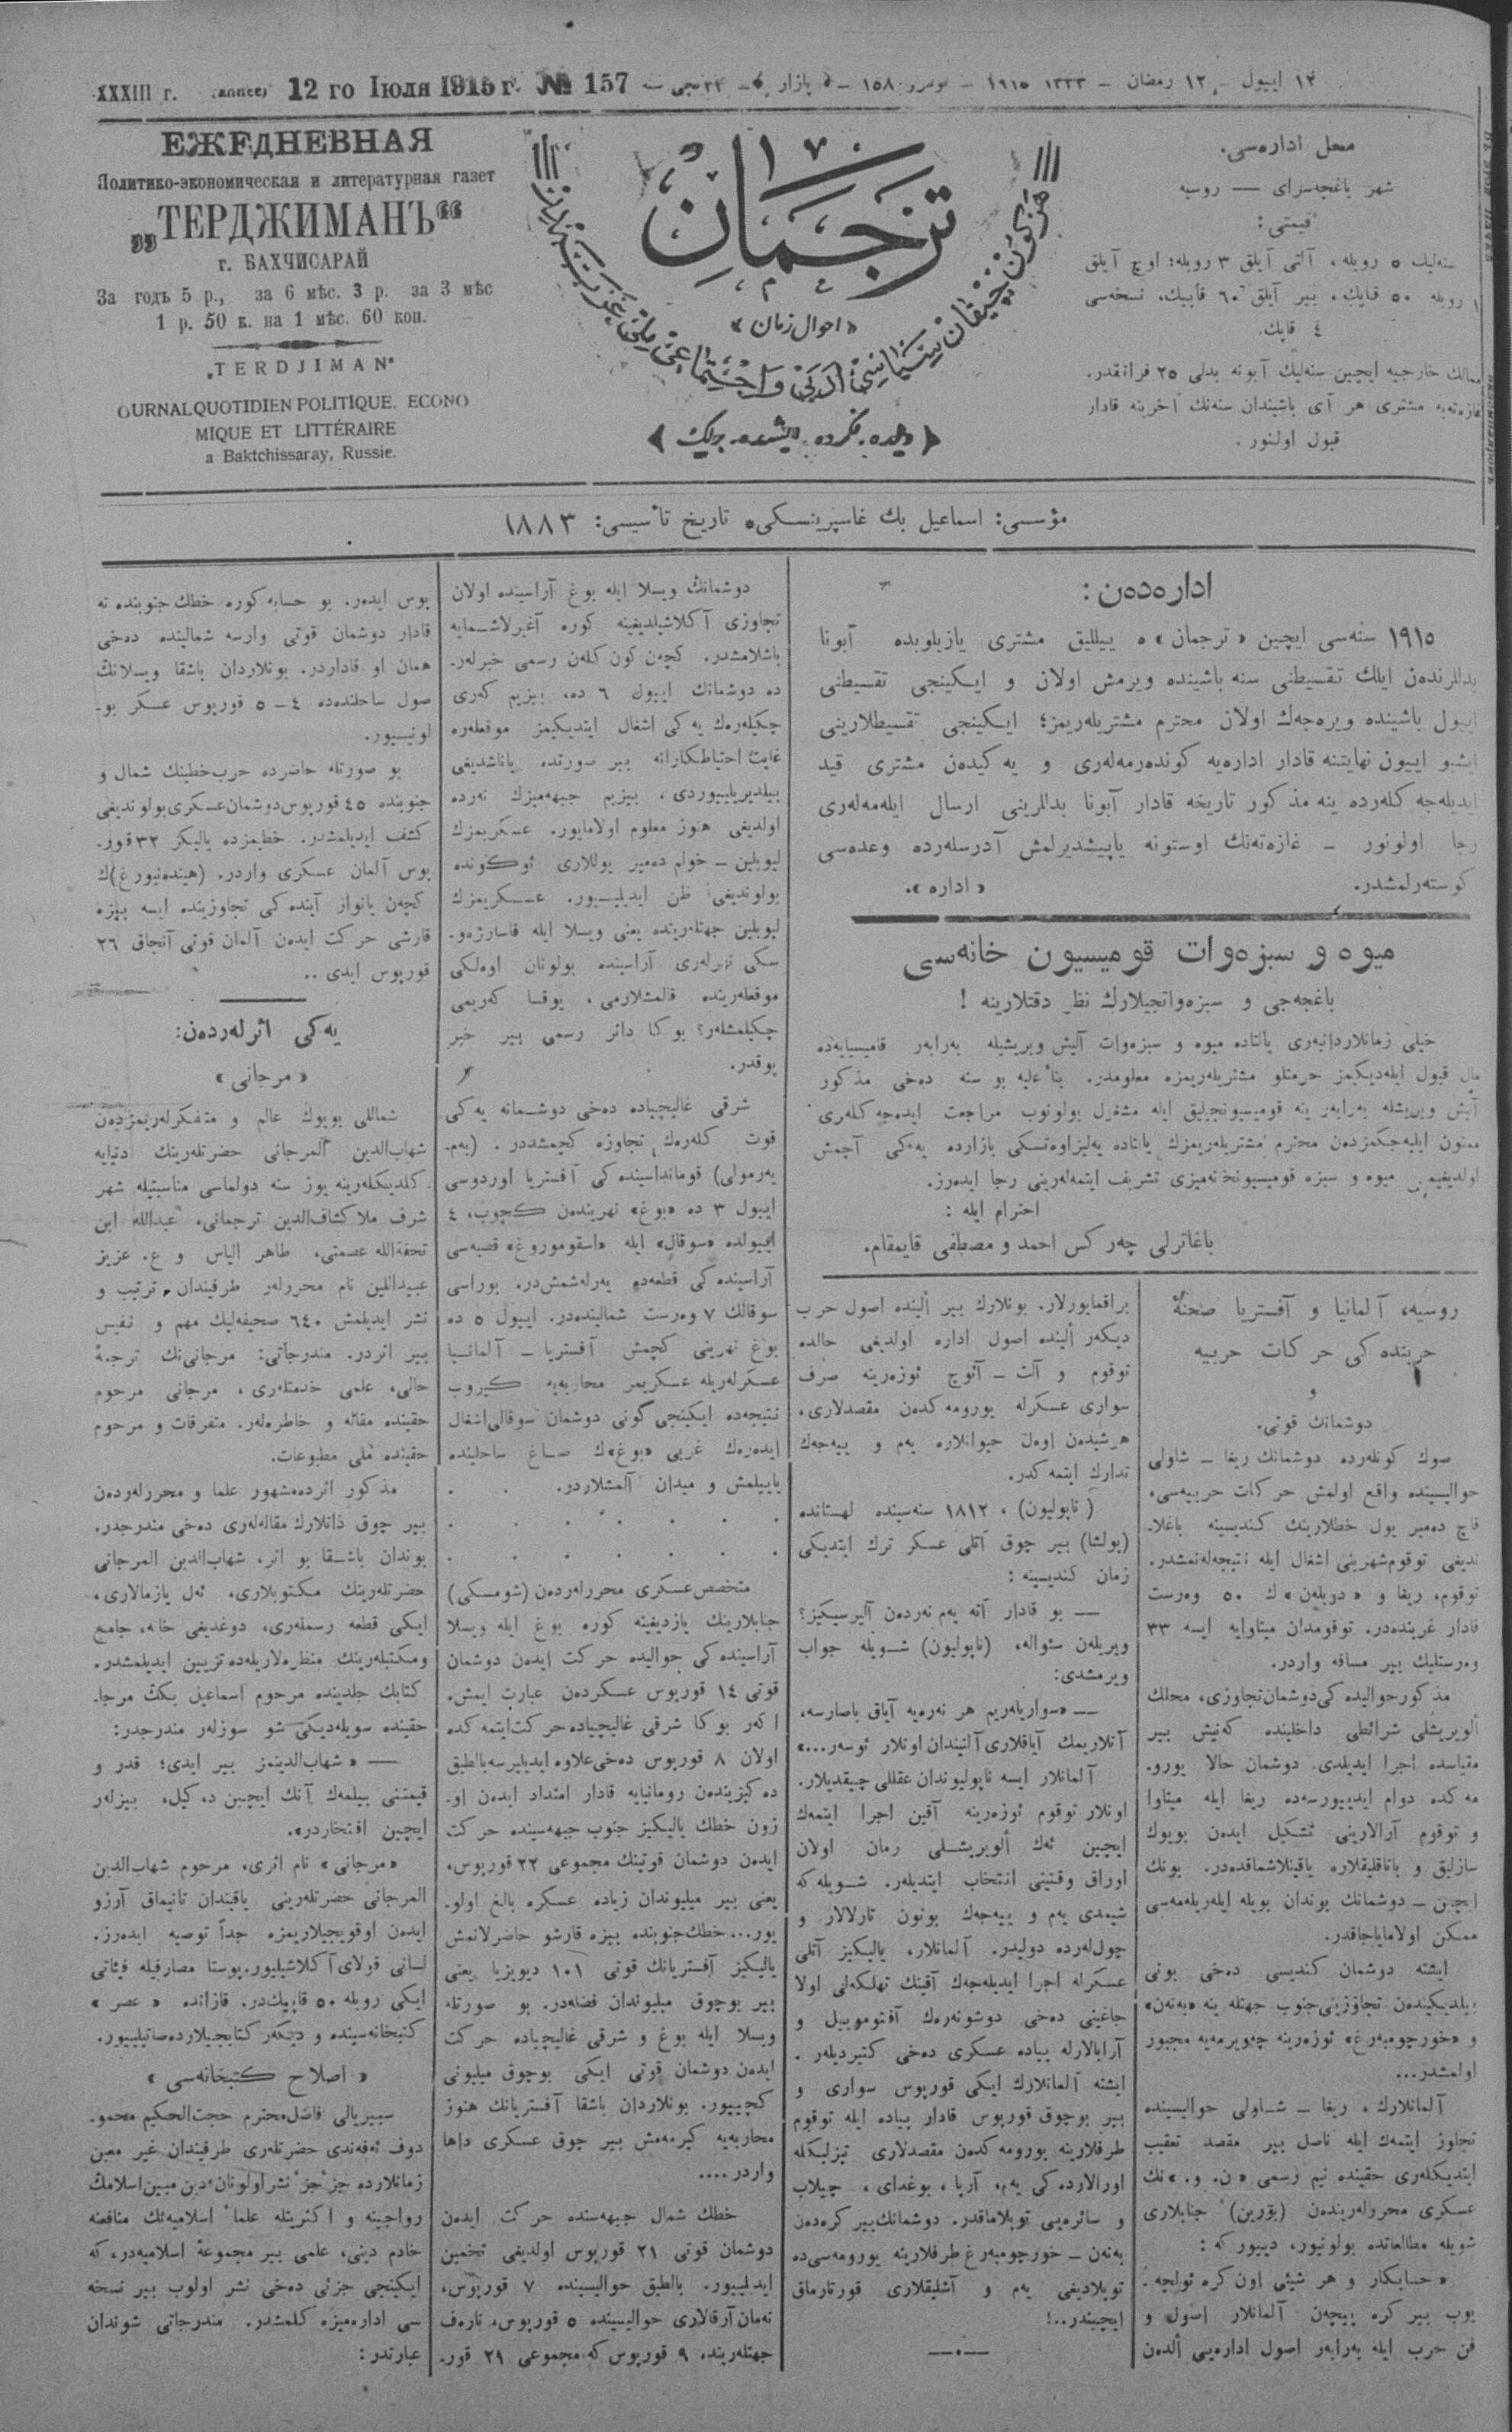 XXXIII г. (année) 12 го Іюля 1915 г. № 157
١٢ اییول – ١٢ رمضان – ١٣٣٣ – ١٩١٥ – نومرو ١٥٨ – بازار – ٣٣ نجی سنه
ЕЖЕДНЕВНАЯ
Политико-экономическая и литературная газет
„ТЕРДЖИМАНЪ“
г. БАХЧИСАРАЙ
За годъ 5 р., за 6 мѣс. 3 р. за 3 мѣс
1 р. 50 к. на 1 мѣс. 60 коп.
„TERDJIMAN“
OURNAL QUOTIDIEN POLITIQUE. ECONO
MIQUE ET LITTÉRAIRE
a Baktchissaray, Russie.
ترجمان
« احوال زمان »
دیلده، فکرده، ایشده برلیك
محل اداره‌سی.
شهر باغچه‌سرای — روسیه
قیمتی:
سنه‌لیك ٥ روبله، آلتی آیلق ٣ روبله؛ اوچ آیلق
١ روبله ٥٠ قاپیك، بیر آیلق ٦٠ قاپیك، نسخه‌سی
٤ قاپك.
ممالك خارجیه ایچین سنه‌لیك آبونه بدلی ٢٥ فرانقدر.
غازه‌ته‌یه مشتری هر آی باشیندان سنه‌نك آخرینه قادار
قبول اولنور.
مؤسسی: اسماعیل بك غاسپرینسکی ٥ تاریخ تأسیسی: ١٨٨٣
اداره‌دن:
١٩١٥ سنه‌سی ایچین « ترجمان » ه ییللیق مشتری یازیلوبده آبونا
بدللرنده‌ن ایلك تقسیطنی سنه باشینده ویرمش اولان و ایکینجی تقسیطنی
اییول باشینده ویره‌جه‌ك اولان محترم مشتریله‌ریمز؛ ایکینجی تقسیطلارینی
ایشبو اییون نهایتنه قادار اداره‌یه کونده‌رمه‌له‌ری و یه‌کیده‌ن مشتری قید
ایدیله‌جه‌کله‌رده ینه مذکور تاریخه قادار آبونا بدللرینی ارسال ایله‌مه‌له‌ری
رجا اولونور – غازه‌ته‌نك اوستونه یاپیشدیرلمش آدرسله‌رده وعده‌سی
کوسته‌رلمشدر. « اداره ».
میوه و سبزه‌وات قومیسیون خانه‌سی
باغچه‌جی و سبزه‌واتجیلارك نظر دقتلارینه !
خیلی زمانلاردانبه‌ری یالتاده میوه و سبزه‌وات آلیش ویریشیله به‌رابه‌ر قامیسیایه‌ده
مال قبول ایله‌دیکیمز حرمتلو مشتریله‌ریمزه معلومدر. بناءً علیه بو سنه ده‌خی مذکور
آلیش ویریشله به‌رابه‌ر ینه قومیسیونجیلیق ایله مشغول بولونوب مراجعت ایده‌جه‌کله‌ری
ممنون ایلیه‌جکمزدن محترم مشتریله‌ریمزك یالتاده یه‌لیزاوه‌تسکی بازارده یه‌کی آچمش
اولدیغیمیز میوه و سبزه قومیسیونخانه‌میزی تشریف ایتمه‌له‌رینی رجا ایده‌رز.
احترام ایله :
باغاترلی چه‌رکس احمد و مصطفی قایمقام.
روسیه، آلمانیا و آفستریا صحنهٔ
حربنده کی حرکات حربیه
و
دوشمانك قوتی.
صوك کونله‌رده دوشمانك ریغا – شاولی
حوالیسینده واقع اولمش حرکات حربیه‌سی،
قاچ ده‌میر یول خطلارینك کندیسینه باغلا-
ندیغی توقوم شهرینی اشغال ایله نتیجه‌له‌نمشدر.
توقوم، ریغا و « دوبلەن » ك ٥٠ وه‌رست
قادار غربنده‌در. توقومدان میتاوایه ایسه ٣٣
وه‌رستلیك بیر مسافه واردر.
مذکور حوالیده کی دوشمان تجاوزی، محلك
ألویریشلی شرائطی داخلینده که‌نیش بیر
مقیاسده اجرا ایدیلدی. دوشمان حالا یورو-
مه‌کده دوام ایدییورسه‌ده ریغا ایله میتاوا
و توقوم آرالارینی تشکیل ایدەن بویوك
سازلیق و باتاقلیقلاره یاقینلاشماقده‌در. بونك
ایچین – دوشمانك بوندان بویله ایله‌ریله‌مه‌سی
ممکن اولامایاجاقدر.
ایشته دوشمان کندیسی ده‌خی بونی
بیلدیکینده‌ن تجاوزینی جنوب جهتله ینه «یه‌نه‌ن»
و «خورجومبه‌رغ» ئوزه‌رینه چه‌ویرمه‌یه مجبور
اولمشدر...
آلمانلارك، ریغا – شاولی حوالیسینده
تجاوز ایتمه‌ك ایله ناصل بیر مقصد تعقیب
ایتدیکله‌ری حقینده نیم رسمی « ن. و. » نك
عسکری محررله‌رینده‌ن (بۆرین) جنابلاری
شویله مطالعاتده بولونیور، دییور که :
« حسابکار و هر شیئی اون کره ئولچه-
یوب بیر کره بیچه‌ن آلمانلار اصول و
فن حرب ایله به‌رابه‌ر اصول اداره‌یی ألده‌ن
براقمایورلار. بونلارك بیر ألینده اصول حرب
دیکه‌ر ألینده اصول اداره اولدیغی حالده
توقوم و آلت – آئوج ئوزه‌رینه صرف
سواری عسکرله یورومه‌کده‌ن مقصدلاری،
هرشیده‌ن اوه‌ل حیوانلاره یه‌م و ییه‌جه‌ك
تدارك ایتمه‌کدر.
( ناپولیون ) ، ١٨١٢ سنه‌سینده لهستانده
(پولشا) بیر چوق آتلی عسکر ترك ایتدیکی
زمان کندیسینه :
— بو قادار آته یه‌م نه‌رده‌ن آلیرسیکیز؟
ویریله‌ن سئواله، (ناپولیون) شویله جواب
ویرمشدی:
— «سواریله‌ریم هر نه‌ره‌یه آیاق باصارسه،
آتلاریمك آیاقلاری آلتیندان اوتلار ئوسه‌ر...»
آلمانلار ایسه ناپولیوندان عقللی چیقدیلار.
اونلار توقوم ئوزه‌رینه آقین اجرا ایتمه‌ك
ایچین ئه‌ك ألویریشلی زمان اولان
اوراق وقتینی انتخاب ایتدیله‌ر. شویله که
شیمدی یه‌م و ییه‌جه‌ك بوتون تارلالار و
چولله‌رده دولیدر. آلمانلار، یالیکیز آتلی
عسکرله اجرا ایدیله‌جه‌ك آقینك تهلکه‌لی اولا
جاغینی ده‌خی دوشونه‌ره‌ك آفتوموبیل و
آرابالارله پیاده عسکری ده‌خی کتیردیله‌ر .
ایشته آلمانلارك ایکی قورپوس سواری و
بیر بوچوق قورپوس قادار پیاده ایله توقوم
طرفلارینه یورومه‌کده‌ن مقصدلاری تیزلیکله
اورالارده کی یه‌م، آرپا، بوغدای، چیلاب
و سائره‌یی توپلاماقدر. دوشمانك بیر کره‌ده‌ن
یه‌نه‌ن – خورجومبه‌رغ طرفلارینه یورومه‌سی‌ده
توپلادیغی یه‌م و آشلیقلاری قورتارماق
ایچیندر..!
دوشمانك ویسلا ایله بوغ آراسینده اولان
تجاوزی آکلاشیلدیغینه کوره آغیرلاشمایه
باشلامشدر. کچه‌ن کون کله‌ن رسمی خبرله‌ر-
ده دوشمانك اییول ٦ ده، بیزیم که‌ری
چکیله‌ره‌ك یه‌کی اشغال ایتدیکیمز موقعله‌ره
غایت احتیاطکارانه بیر صورتده یاناشدیغی
بیلدیریلییوردی، بیزیم جبهه‌میزك نه‌رده
اولدیغی هنوز معلوم اولامایور. عسکریمزك
لیوبلین – خولم ده‌میر یوللاری ئوکونده
بولوندیغی ظن ایدیلییور. عسکریمزك
لیوبلین جهتله‌رینده یعنی ویسلا ایله قاسارژه‌و-
سکی نهرله‌ری آراسینده بولونان اوه‌لکی
موقعله‌رینده قالمشلارمی، یوقسا که‌ریمی
چکیلمشله‌ر؟ بوکا دائر رسمی بیر خبر
یوقدر.
شرقی غالیچیاده ده‌خی دوشمانه یه‌کی
قوت کله‌ره‌ك تجاوزه کچمشدر. (به‌م-
یه‌رمولی) قومانداسینده کی آفستریا اوردوسی
اییول ٣ ده «بوغ» نهرینده‌ن کچوب، ٤
اییولده «سوقال» ایله «اسقوموروغ» قصبه‌سی
آراسینده کی قطعه‌ده یه‌رله‌شمش‌در. بوراسی
سوقالك ٧ وه‌رست شمالینده‌در. اییول ٥ ده
بوغ نهرینی کچمش آفستریا – آلمانیا
عسکرله‌ریله عسکریمز محاربه‌یه کیروب
نتیجه‌ده ایکینجی گونی دوشمان سوقالی اشغال
ایده‌ره‌ك غربی «بوغ»ك صاغ ساحلینده
یاییلمش و میدان آلمشلاردر.
متخصص عسکری محررله‌رده‌ن (شومسکی)
جنابلارینك یازدیغینه کوره بوغ ایله ویسلا
آراسینده کی حوالیده حرکت ایده‌ن دوشمان
قوتی ١٤ قورپوس عسکرده‌ن عبارت ایمش.
اکه‌ر بوکا شرقی غالیچیاده حرکت ایتمه‌کده
اولان ٨ قورپوس ده‌خی علاوه ایدیلیرسه بالطیق
ده‌کیزینده‌ن رومانیایه قادار امتداد ایده‌ن او-
زون خطك یالیکیز جنوب جبهه‌سینده حرکت
ایده‌ن دوشمان قوتینك مجموعی ٢٢ قورپوس،
یعنی بیر میلیوندان زیاده عسکره بالغ اولو-
یور... خطك جنوبنده بیزه قارشو حاضرلانمش
یالیکیز آفستریانك قوتی ١٠١ دیویزیا یعنی
بیر بوچوق میلیوندان فضله‌در. بو صورتله
ویسلا ایله بوغ و شرقی غالیچیاده حرکت
ایده‌ن دوشمان قوتی ایکی بوچوق میلیونی
کچییور. بونلاردان باشقا آفستریانك هنوز
محاربه‌یه کیرمه‌مش بیر چوق عسکری داها
واردر....
خطك شمال جبهه‌سنده حرکت ایده‌ن
دوشمان قوتی ٢١ قورپوس اولدیغی تخمین
ایدیلییور. بالطیق حوالیسینده ٧ قورپوس،
نه‌مان آرقالاری حوالیسینده ٥ قورپوس، ناره‌ف
جهتله‌رینده ٩ قورپوس که مجموعی ٢١ قور-
پوس ایده‌ر. بو حسابه کوره خطك جنوبنده نه
قادار دوشمان قوتی وارسه شمالینده ده‌خی
همان او قاداردر. بونلاردان باشقا ویسلانك
صول ساحلنده‌ده ٤ – ٥ قورپوس عسکر بو-
لونییور.
بو صورتله حاضرده حرب خطینك شمال و
جنوبنده ٤٥ قورپوس دوشمان عسکری بولوندیغی
کشف ایدیلمشدر. خطیمزده یالیکز ٣٢ قور-
پوس آلمان عسکری واردر. (هینده‌نبورغ)ك
کچه‌ن یانوار آینده کی تجاوزینده ایسه بیزه
قارشی حرکت ایده‌ن آلمان قوتی آنجاق ٢٦
قورپوس ایدی ..
یه‌کی اثرله‌رده‌ن:
« مرجانی »
شماللی بویوك عالم و متفکرله‌ریمزده‌ن
شهاب‌الدین المرجانی حضرتله‌رینك دنیایه
کلدیکله‌رینه یوز سنه دولماسی مناسبتیله شهر
شرف ملا کشاف‌الدین ترجمانی، عبدالله ابن
تحفةالله عصمتی، طاهر الیاس و ع. عزیز
عبیداللین نام محررله‌ر طرفیندان ترتیب و
نشر ایدیلمش ٦٤٠ صحیفه‌لیك مهم و نفیس
بیر اثردر. مندرجاتی: مرجانی‌نك ترجمهٔ
حالی، علمی خدمتله‌ری، مرجانی مرحوم
حقینده مقاله و خاطره‌له‌ر. متفرقات و مرحوم
حقینده ملی مطبوعات.
مذکور اثرده مشهور علما و محررله‌رده‌ن
بیر چوق ذاتلارك مقاله‌له‌ری ده‌خی مندرجدر.
بوندان باشقا بو اثر، شهاب‌الدین المرجانی
حضرتله‌رینك مکتوبلاری، ئه‌ل یازمالاری،
ایکی قطعه رسمله‌ری، دوغدیغی خانه، جامع
ومکتبله‌رینك منظره‌لاریله‌ده تزیین ایدیلمشدر.
کتابك جلدینده مرحوم اسماعیل بكك مرجا-
حقینده سویله‌دیکی شو سوزله‌ر مندرجدر:
— « شهاب‌الدینمز بیر ایدی؛ قدر و
قیمتنی بیلمه‌ك آنك ایچین ده‌کیل، بیزله‌ر
ایچین افتخاردر».
«مرجانی» نام اثری، مرحوم شهاب‌الدین
المرجانی حضرتله‌رینی یاقیندان تانیماق آرزو
ایده‌ن اوقویجیلاریمزه جداً توصیه ایده‌رز.
لسانی قولای آکلاشیلیور. پوستا مصارفیله فیئاتی
ایکی روبله ٥٠ قاپیك‌در. قازانده « عصر »
کتبخانه‌سینده و دیکه‌ر کتابجیلارده صاتیلییور.
« اصلاح کتبخانه‌سی »
سیبریالی فاضل محترم حجت‌الحکیم محمو-
دوف ئه‌فه‌ندی حضرتله‌ری طرفیندان غیر معین
زمانلارده جزء جزء نشر اولونان، دین مبین اسلامك
رواجینه و اکثریتله علماء اسلامیه‌نك منافعنه
خادم دینی، علمی بیر مجموعهٔ اسلامیه‌در، که
ایکینجی جزئی ده‌خی نشر اولوب بیر نسخه
سی اداره‌میزه کلمشدر. مندرجاتی شوندان
عبارتدر: